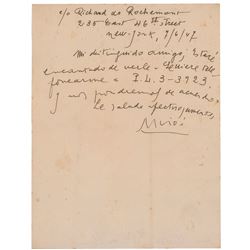 c/o Richard de Rochemont
235 East 46th Street
New-York, 7/6/47
Mi distinguido amigo, Estaré
encantado de verle - Quiere tele
fonearme a P.L.3-3923.
y nos pondremos de acuerdo.
Le saluda afectuosamente,
Miró